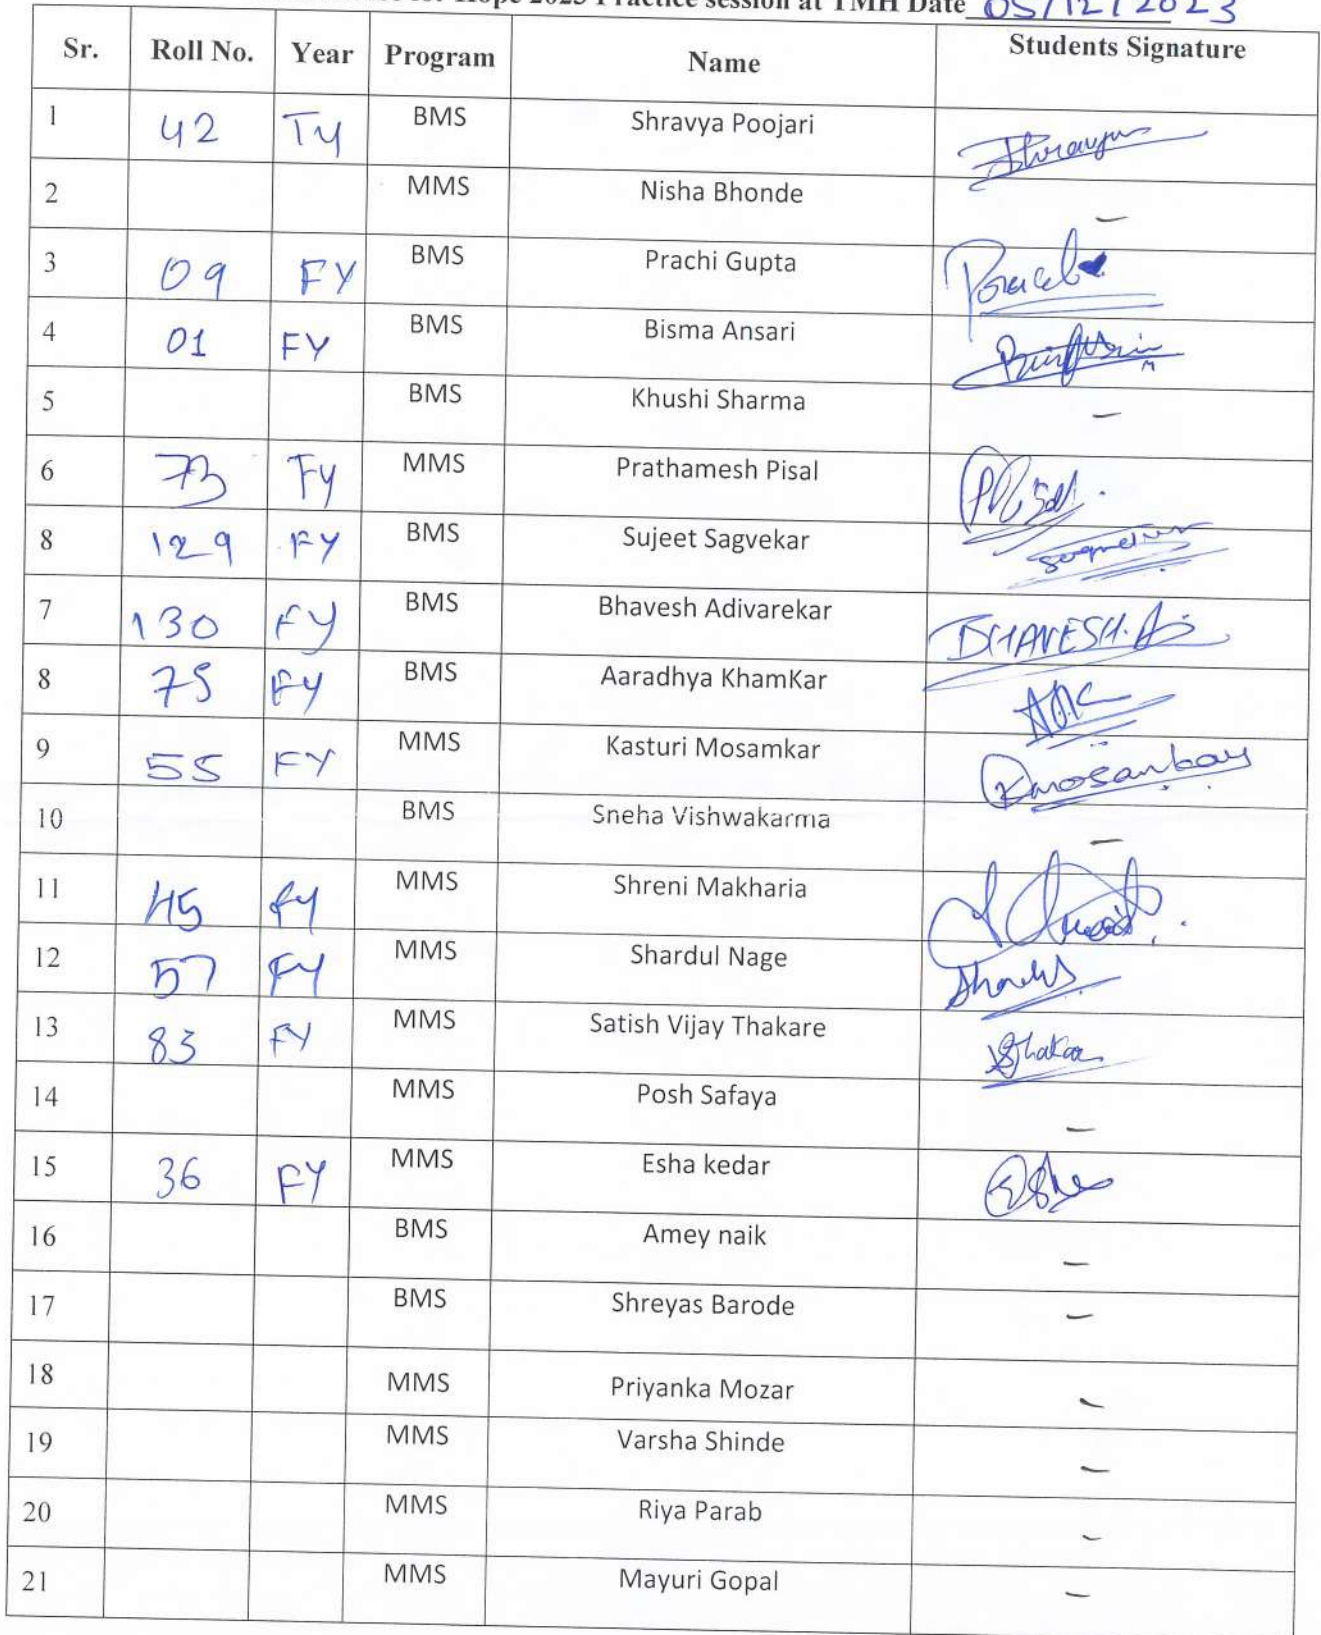 Hope 2023 Practice session at TMH Date 05/12/2023
Sr. Roll No. Year Program Name Students Signature
1 42 Ty BMS Shravya Poojari
2 MMS Nisha Bhonde –
3 09 FY BMS Prachi Gupta
4 01 FY BMS Bisma Ansari
5 BMS Khushi Sharma –
6 73 Fy MMS Prathamesh Pisal
8 129 FY BMS Sujeet Sagvekar
7 130 FY BMS Bhavesh Adivarekar BHAVESH.A
8 75 FY BMS Aaradhya KhamKar
9 55 FY MMS Kasturi Mosamkar
10 BMS Sneha Vishwakarma –
11 45 fy MMS Shreni Makharia
12 57 FY MMS Shardul Nage
13 83 FY MMS Satish Vijay Thakare
14 MMS Posh Safaya –
15 36 FY MMS Esha kedar
16 BMS Amey naik –
17 BMS Shreyas Barode –
18 MMS Priyanka Mozar –
19 MMS Varsha Shinde –
20 MMS Riya Parab –
21 MMS Mayuri Gopal –